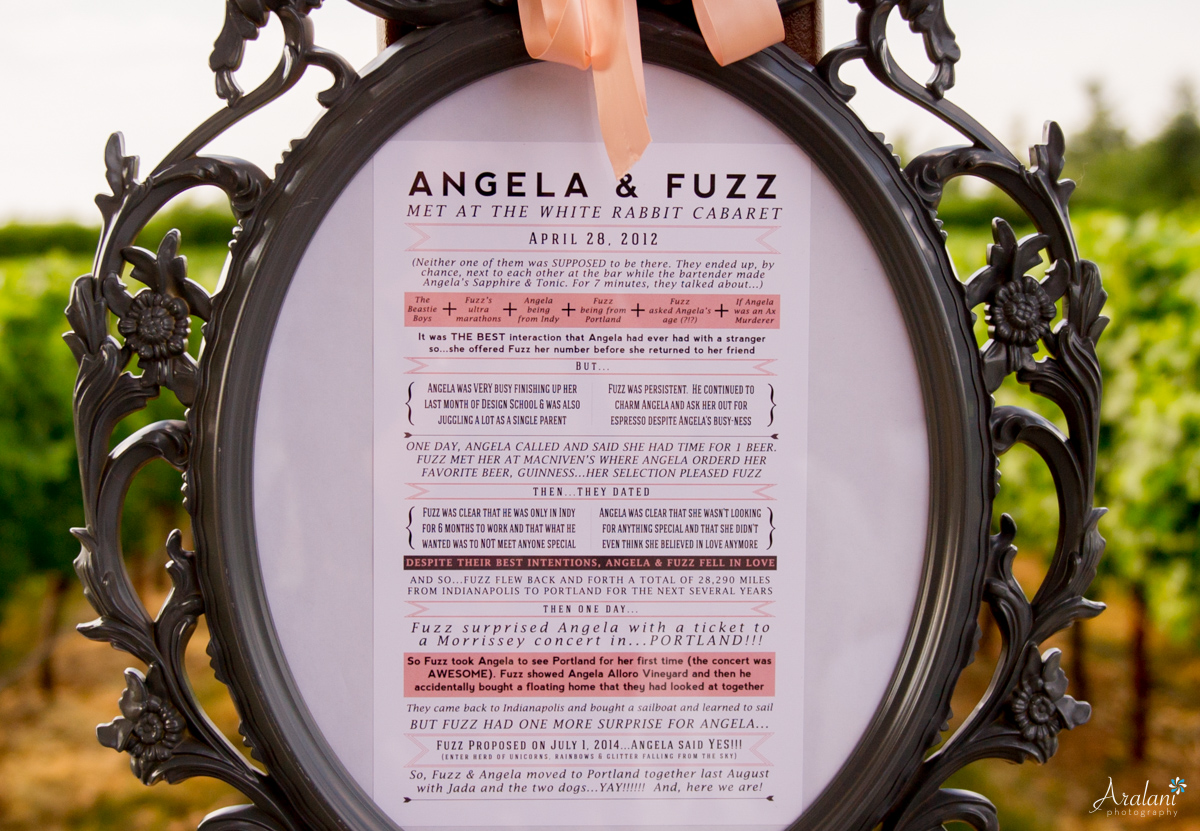 ANGELA & FUZZ
MET AT THE WHITE RABBIT CABARET
APRIL 28, 2012
(Neither one of them was SUPPOSED to be there. They ended up, by
chance, next to each other at the bar while the bartender made
Angela's Sapphire & Tonic. For 7 minutes, they talked about...)
The Beastie Boys + Fuzz's ultra marathons + Angela being from Indy + Fuzz being from Portland + Fuzz asked Angela's age (?!?) + If Angela was an Ax Murderer
It was THE BEST interaction that Angela had ever had with a stranger
so...she offered Fuzz her number before she returned to her friend
BUT...
ANGELA WAS VERY BUSY FINISHING UP HER
LAST MONTH OF DESIGN SCHOOL & WAS ALSO
JUGGLING A LOT AS A SINGLE PARENT
FUZZ WAS PERSISTENT. HE CONTINUED TO
CHARM ANGELA AND ASK HER OUT FOR
ESPRESSO DESPITE ANGELA'S BUSY-NESS
ONE DAY, ANGELA CALLED AND SAID SHE HAD TIME FOR 1 BEER.
FUZZ MET HER AT MACNIVEN'S WHERE ANGELA ORDERD HER
FAVORITE BEER, GUINNESS...HER SELECTION PLEASED FUZZ
THEN...THEY DATED
FUZZ WAS CLEAR THAT HE WAS ONLY IN INDY
FOR 6 MONTHS TO WORK AND THAT WHAT HE
WANTED WAS TO NOT MEET ANYONE SPECIAL
ANGELA WAS CLEAR THAT SHE WASN'T LOOKING
FOR ANYTHING SPECIAL AND THAT SHE DIDN'T
EVEN THINK SHE BELIEVED IN LOVE ANYMORE
DESPITE THEIR BEST INTENTIONS, ANGELA & FUZZ FELL IN LOVE
AND SO...FUZZ FLEW BACK AND FORTH A TOTAL OF 28,290 MILES
FROM INDIANAPOLIS TO PORTLAND FOR THE NEXT SEVERAL YEARS
THEN ONE DAY...
Fuzz surprised Angela with a ticket to
a Morrissey concert in...PORTLAND!!!
So Fuzz took Angela to see Portland for her first time (the concert was
AWESOME). Fuzz showed Angela Alloro Vineyard and then he
accidentally bought a floating home that they had looked at together
They came back to Indianapolis and bought a sailboat and learned to sail
BUT FUZZ HAD ONE MORE SURPRISE FOR ANGELA...
FUZZ PROPOSED ON JULY 1, 2014...ANGELA SAID YES!!!
(ENTER HERD OF UNICORNS, RAINBOWS & GLITTER FALLING FROM THE SKY)
So, Fuzz & Angela moved to Portland together last August
with Jada and the two dogs...YAY!!!!!! And, here we are!
Aralani
photography